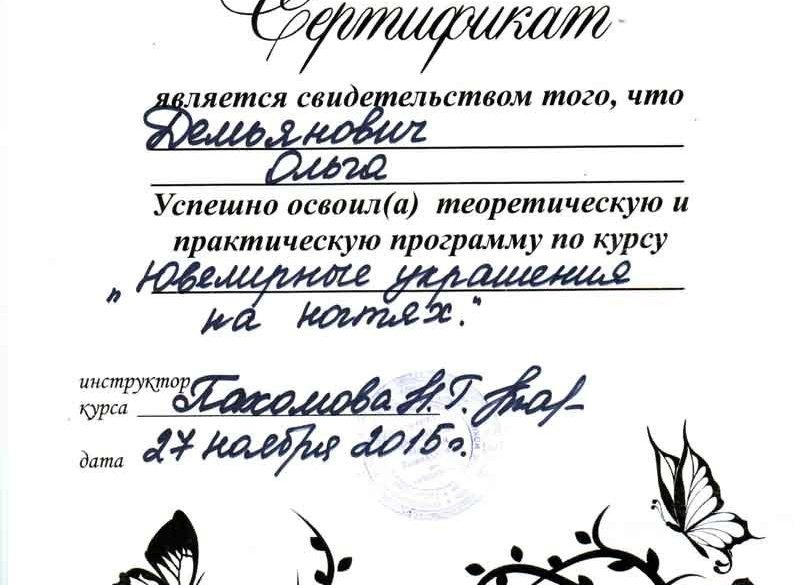 Сертификат
является свидетельством того, что
Демьянович
Ольга
Успешно освоил(а) теоретическую и
практическую программу по курсу
„Ювелирные украшения
на ногтях."
инструктор
курса Пахомова Н.Г.
дата 27 ноября 2015г.